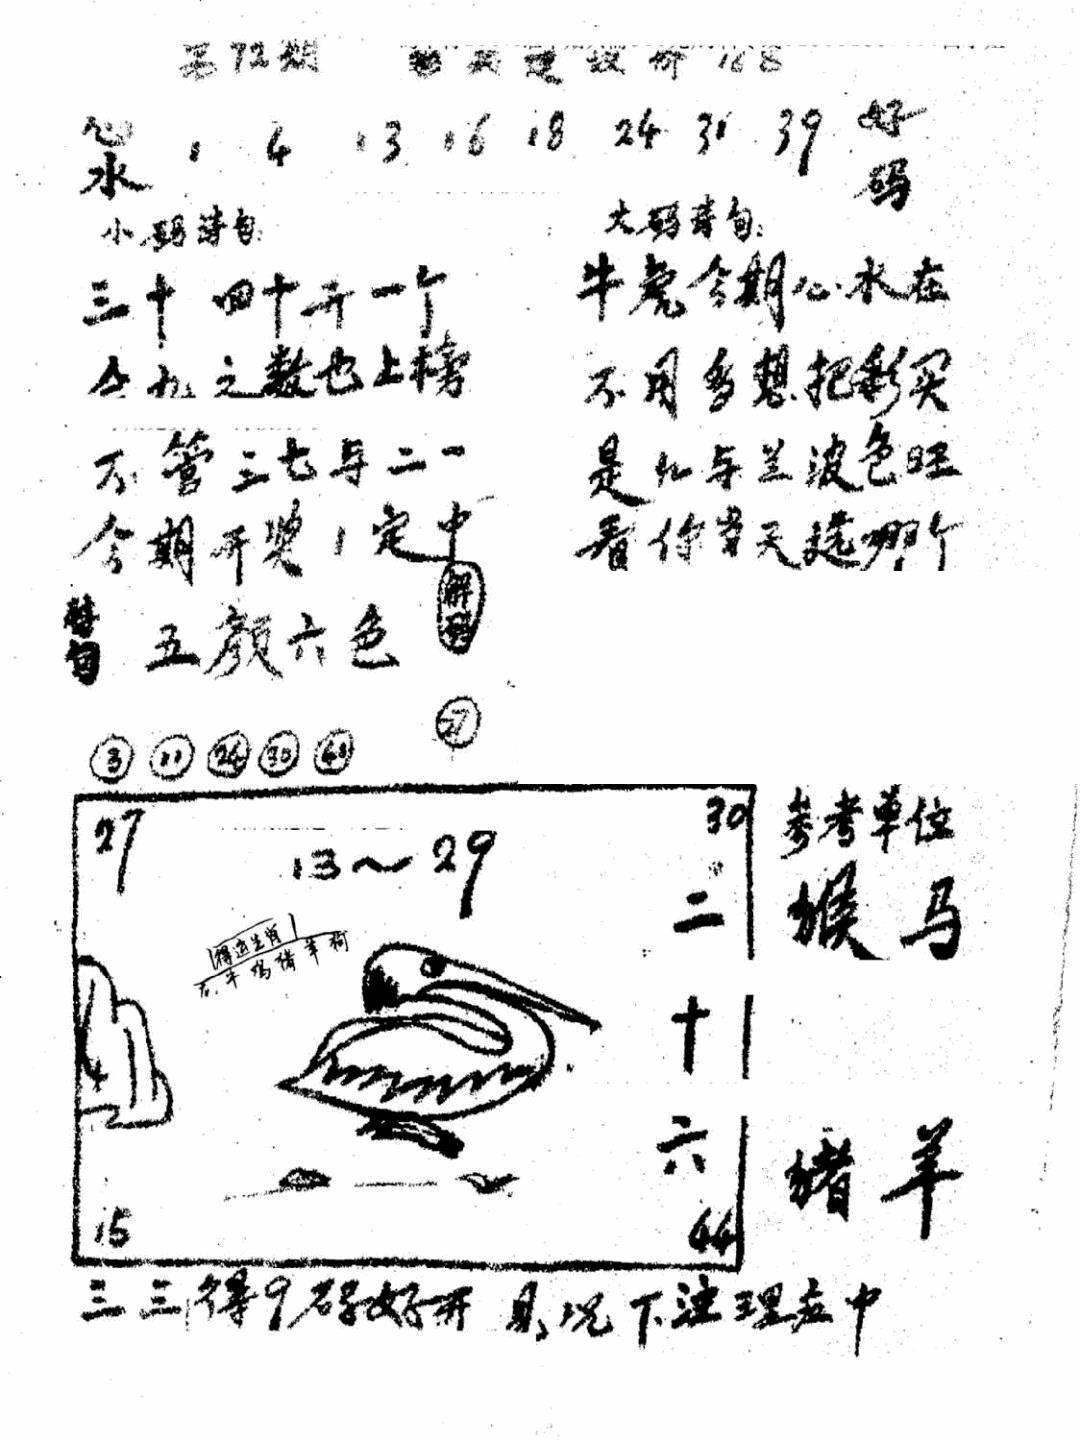 第72期 188
心水 1 4 13 16 18 24 31 39 好码
小码诗句:
三十四十开一个
九之数也上榜
不管三七与二一
今期开奖1定中
大码诗句:
牛虎今期心水在
不用多想把彩买
是 与兰波色旺
看你当天选哪个
诗句 五颜六色
解
27
3 11 24 30 41
27 30
13~29
得运生肖
牛 鸡 猪 羊 狗
二十六
4
15 44
参考单位
猴 马
猪 羊
三三得9 好开 况下注理应中